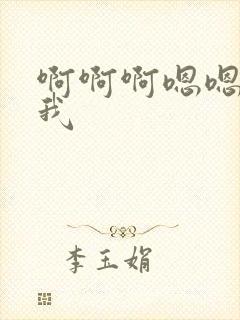 啊啊啊嗯嗯
我
李玉娟